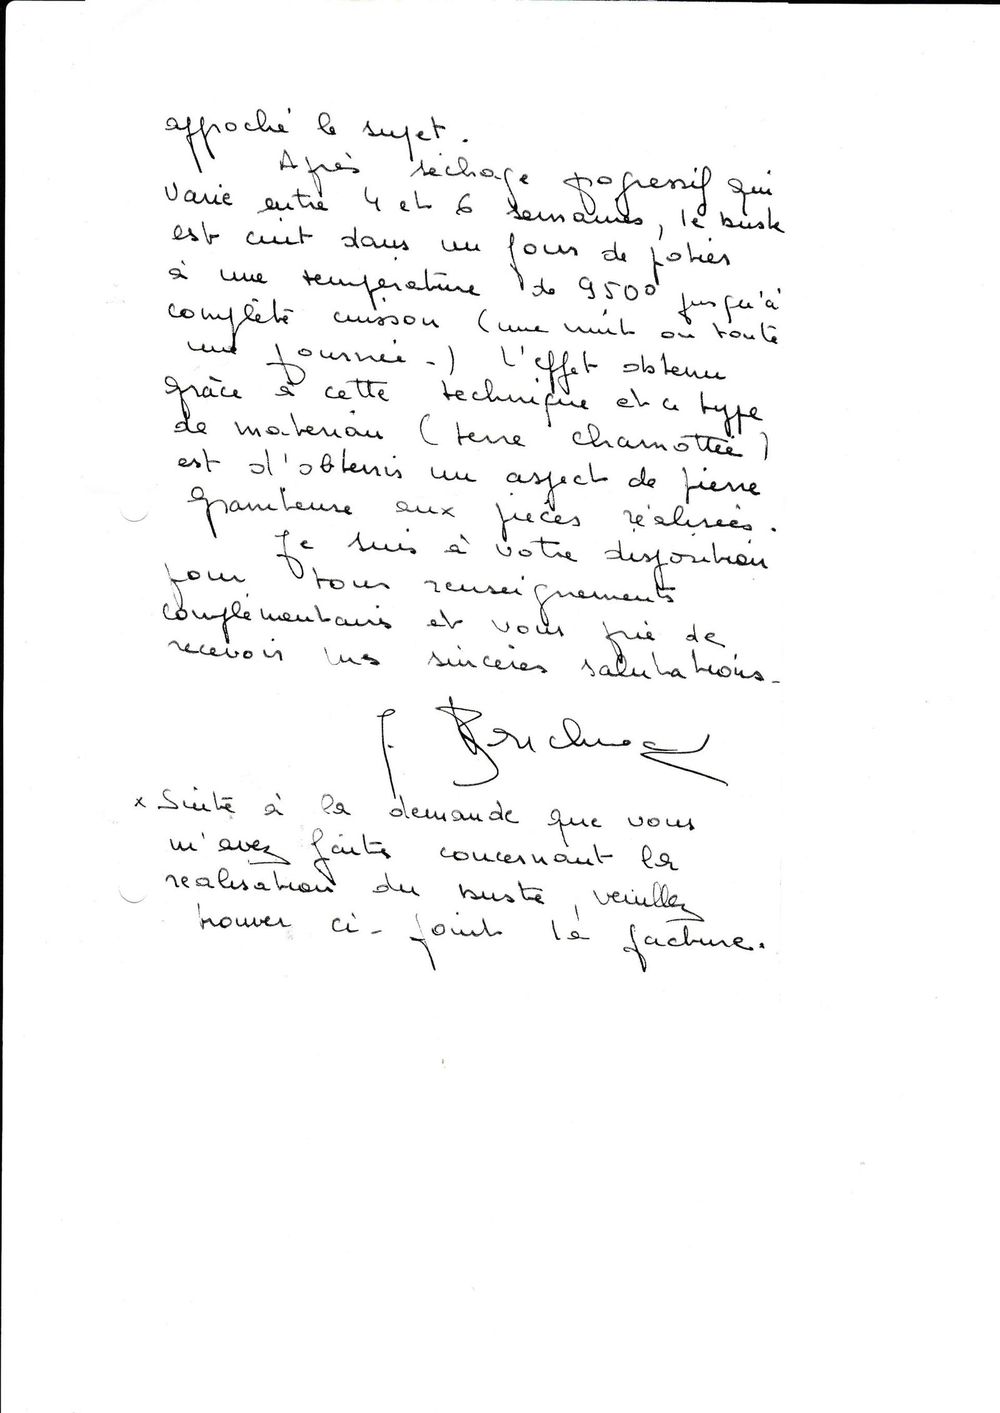 approché le sujet.
Après séchage progressif qui
varie entre 4 et 6 semaines, le buste
est cuit dans un four de potier
à une température de 950° jusqu'à
complète cuisson (une nuit ou toute
une journée-) L'effet obtenu
grâce à cette technique et ce type
de materiau (terre chamottée)
est d'obtenir un aspect de pierre
graniteuse aux pièces réalisées.
Je suis à votre disposition
pour tous renseignements
complémentaires et vous prie de
recevoir mes sincères salutations-
J.
x Suite à la demande que vous
m'avez faite concernant la
realisation du buste, veuillez
trouver ci-joint la facture.